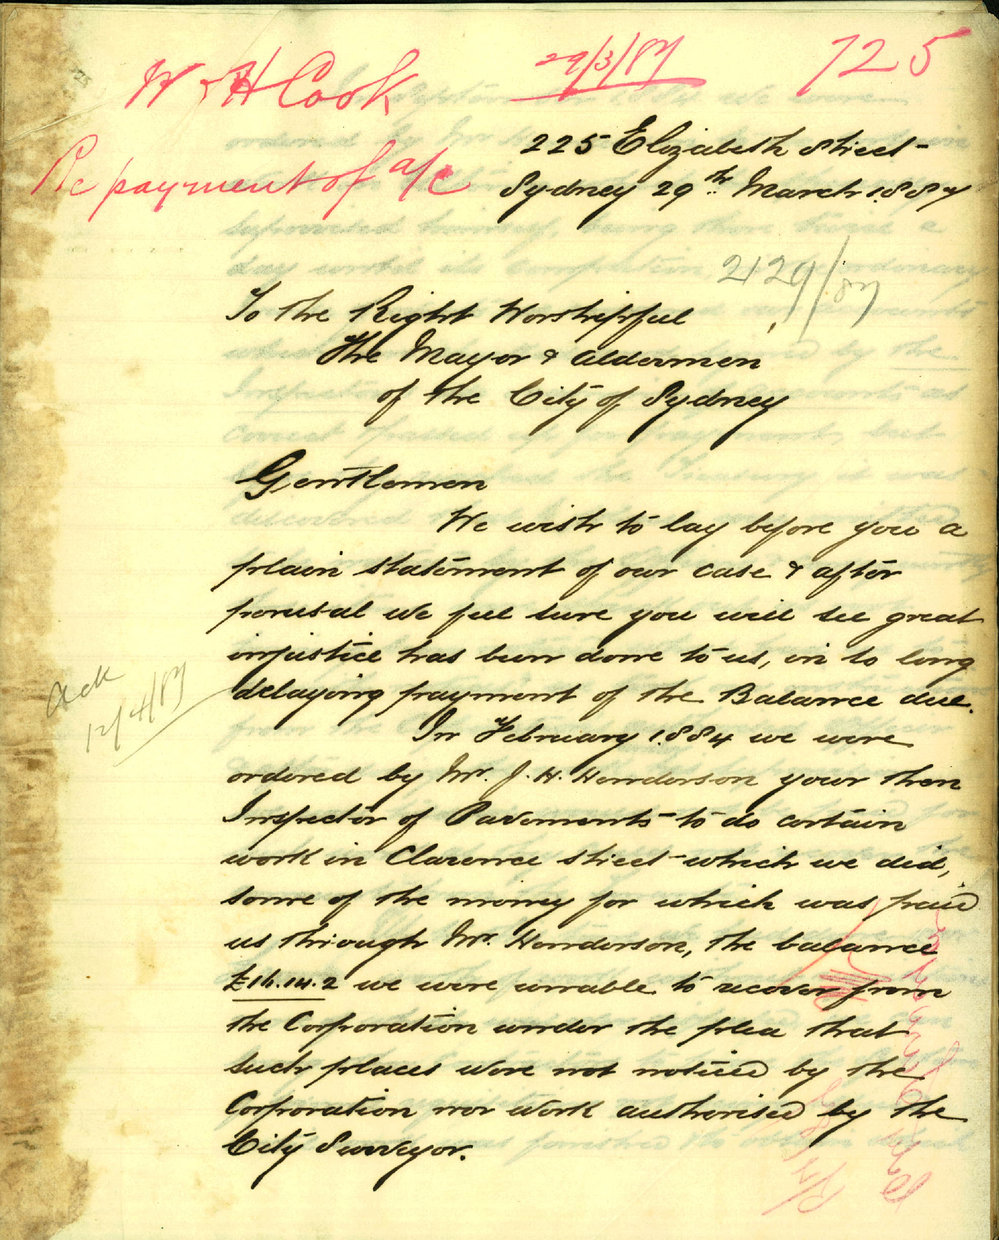 W & H Cook
29/3/87
725
Re payment of a/c
225 Elizabeth Street
Sydney 29th March 1887
2129/87
To the Right Worshipful
The Mayor & Aldermen
of the City of Sydney
Gentlemen
We wish to lay before you a
plain statement of our case & after
perusal we feel sure you will see great
injustice has been done to us, in so long
delaying payment of the Balance due.
Ack
12/4/87
In February 1884 we were
ordered by Mr. J. H. Henderson your then
Inspector of Pavements to do certain
work in Clarence Street which we did,
some of the money for which was paid
us through Mr. Henderson, the balance
£16.14.2 we were unable to recover from
the Corporation under the plea that
such places were not noticed by the
Corporation nor work authorised by the
City Surveyor.